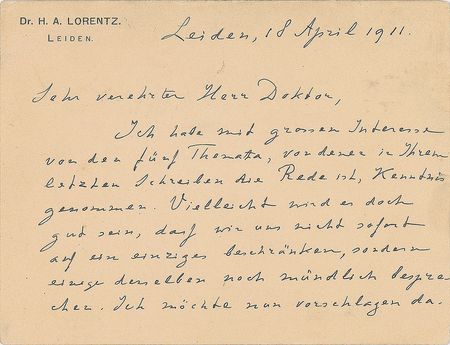 Dr. H. A. LORENTZ.
LEIDEN.
Leiden, 18 April 1911.
Sehr verehrter Herr Doktor,
Ich habe mit grossem Interesse
von den fünf Themata, von denen in Ihrem
letzten Schreiben die Rede ist, Kenntnis
genommen. Vielleicht wird es doch
gut sein, dasz wir uns nicht sofort
auf ein einziges beschränken, sondern
einige derselben noch mündlich bespre-
chen. Ich möchte nun vorschlagen da-